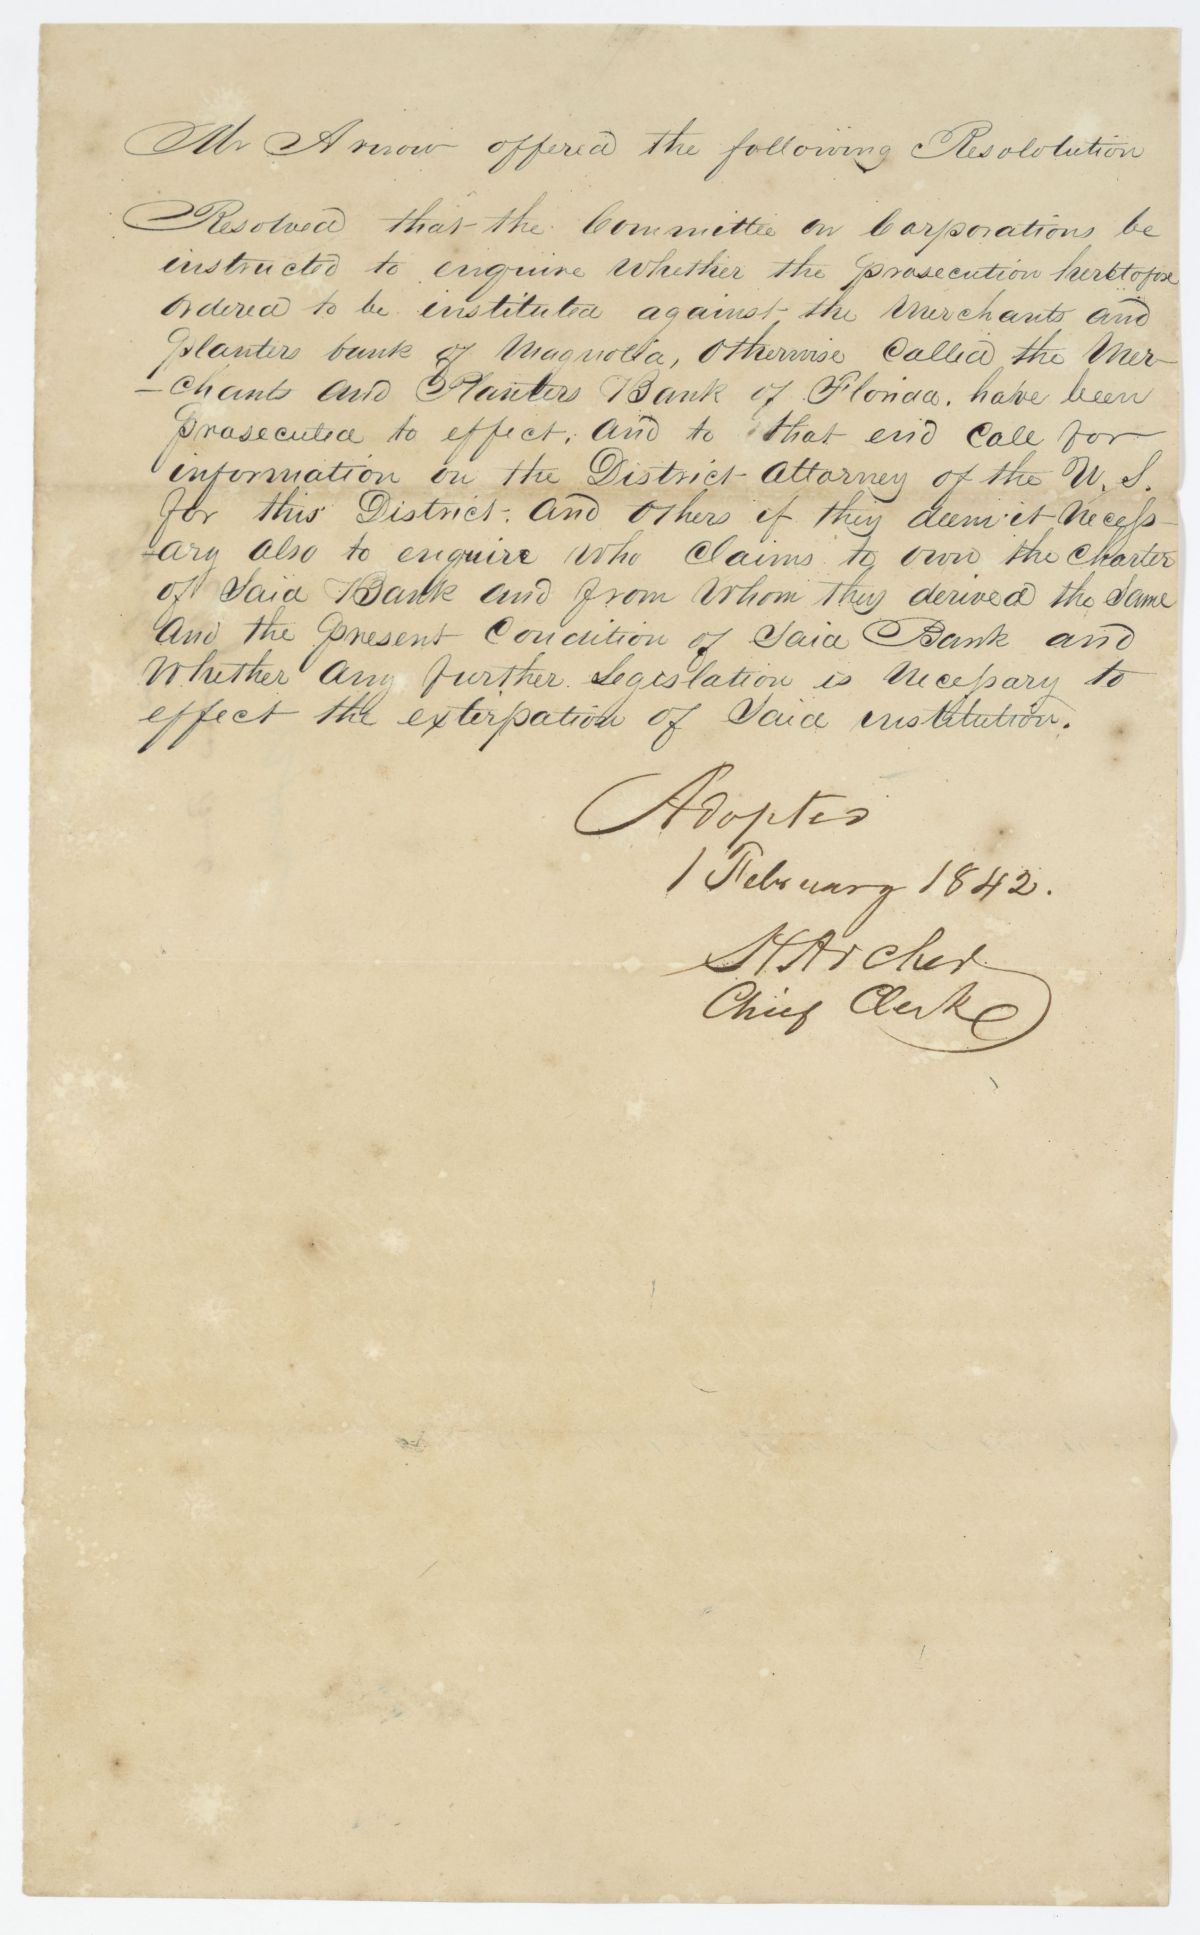 Mr Arnow offered the following Resolotution
Resolved that the Committee on Corporations be
instructed to enquire whether the prosecution heretofore
ordered to be instituted against the Merchants and
Planters bank of Magnolia, Otherwise Called the Mer-
-chants and Planters Bank of Florida. have been
prosecuted to effect, and to that end Call for
information on the District Attorney of the U. S.
for this District. and Others if they deem it Necess-
-ary also to enquire who Claims to own the Charter
of Said Bank and from Whom they derived the Same
and the present Condition of Said Bank and
Whether any further Legislation is Necessary to
effect the exterpation of Said institution.
Adopted
1 February 1842.
H Archer
Chief Clerk